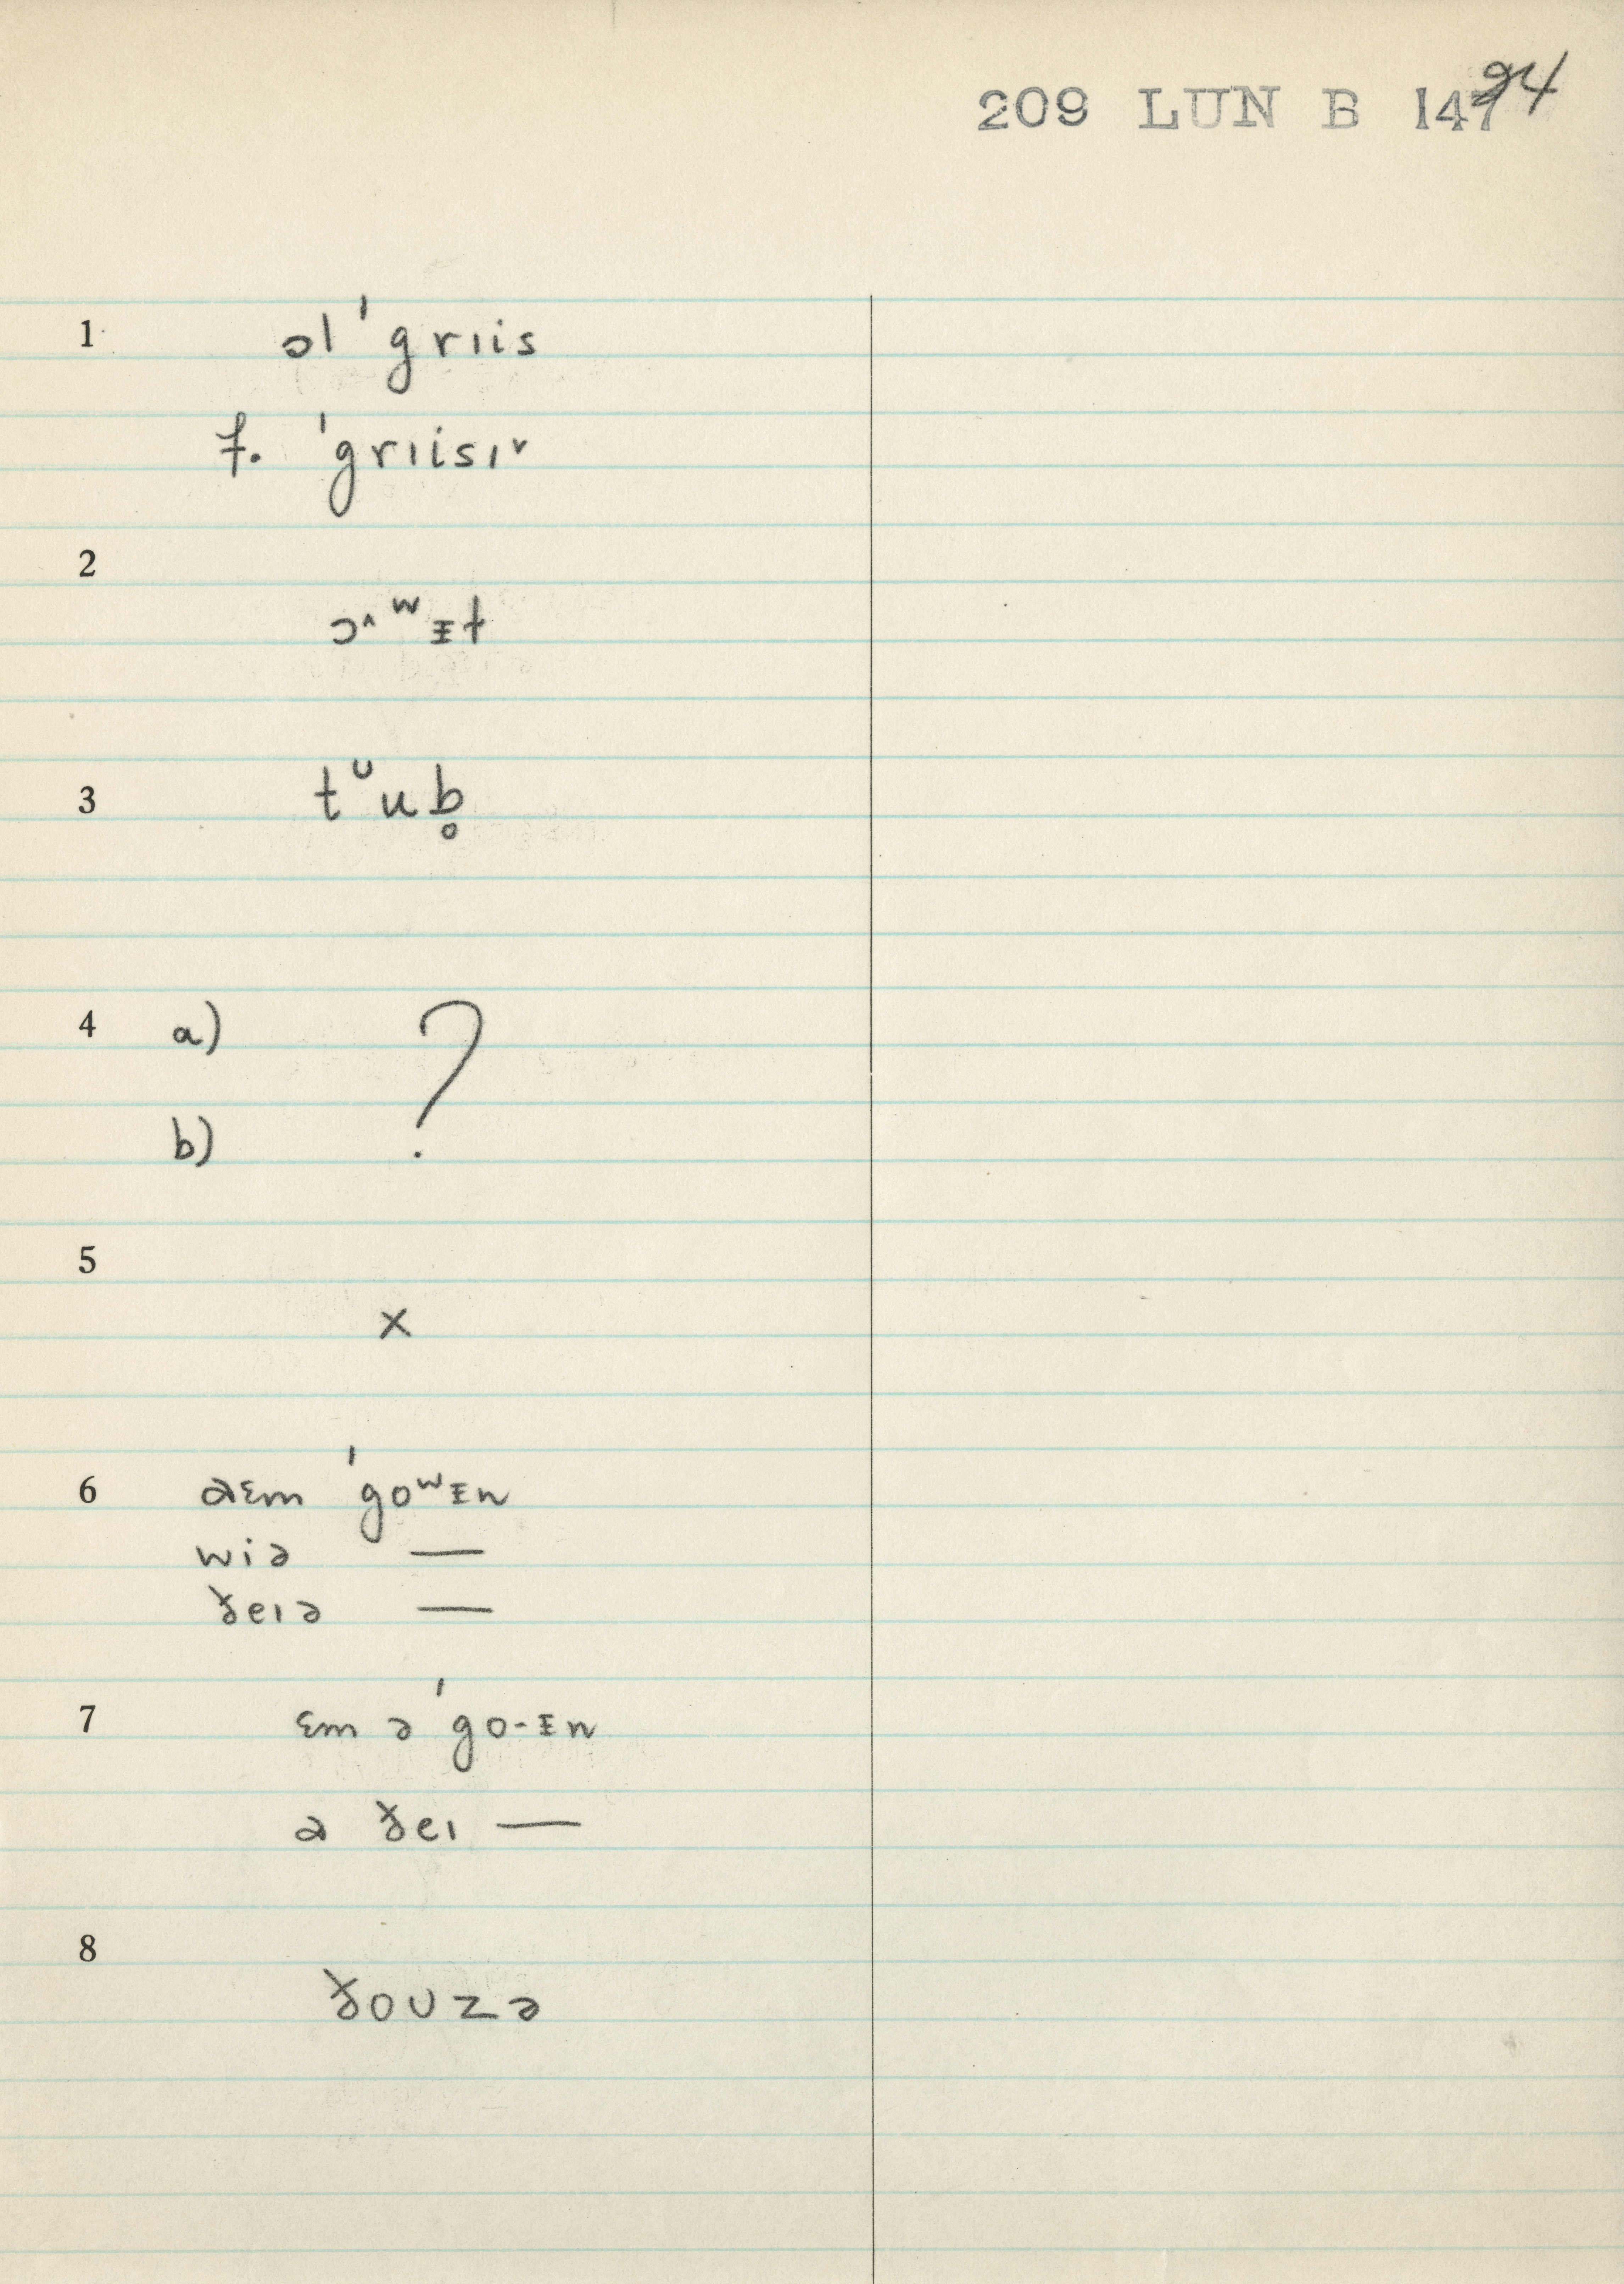 209 LUN B 147
94
1 ɔl ˈgrɪis
f. ˈgrɪisɪ˅
2
ɔ˄ʷᵻt
3 tᶷub̥
4 a) ?
b)
5
x
6 aɛm ˈgoʷᵻn
wiə —
ðeɪə —
7 ɛm ə ˈgo-ᵻn
a ðeɪ —
8
ðoʊzə